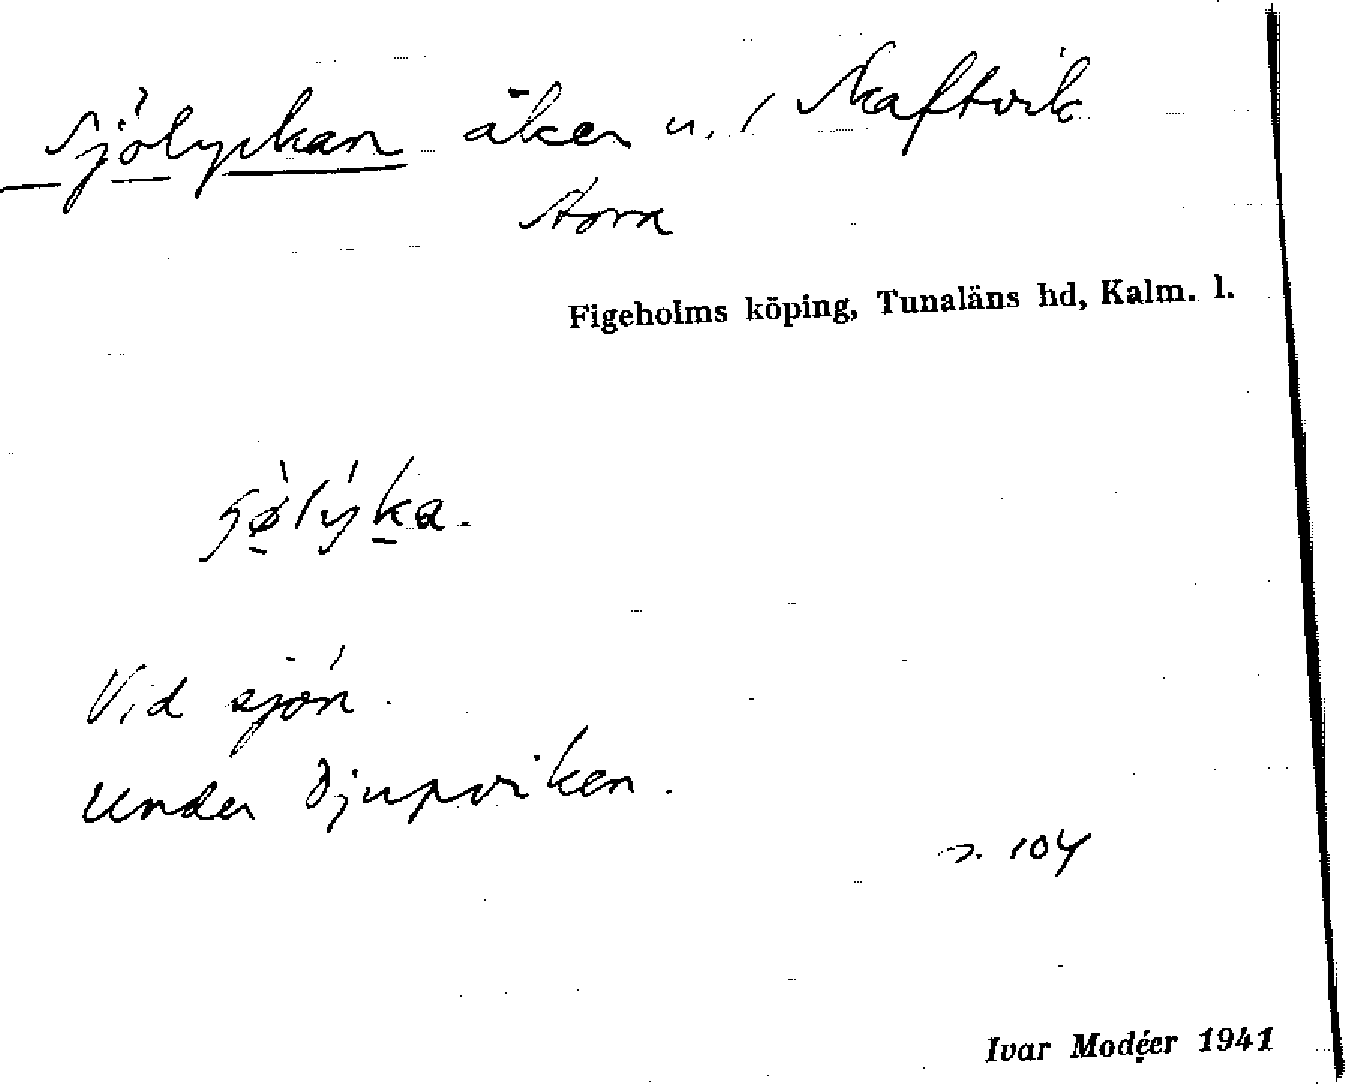 Sjölyckan åker u. 1 Skaftvik
Stora
Figeholms köping, Tunaläns hd, Kalm. l.
Vid sjön.
Under Djupviken.
s. 104
Ivar Modéer 1941